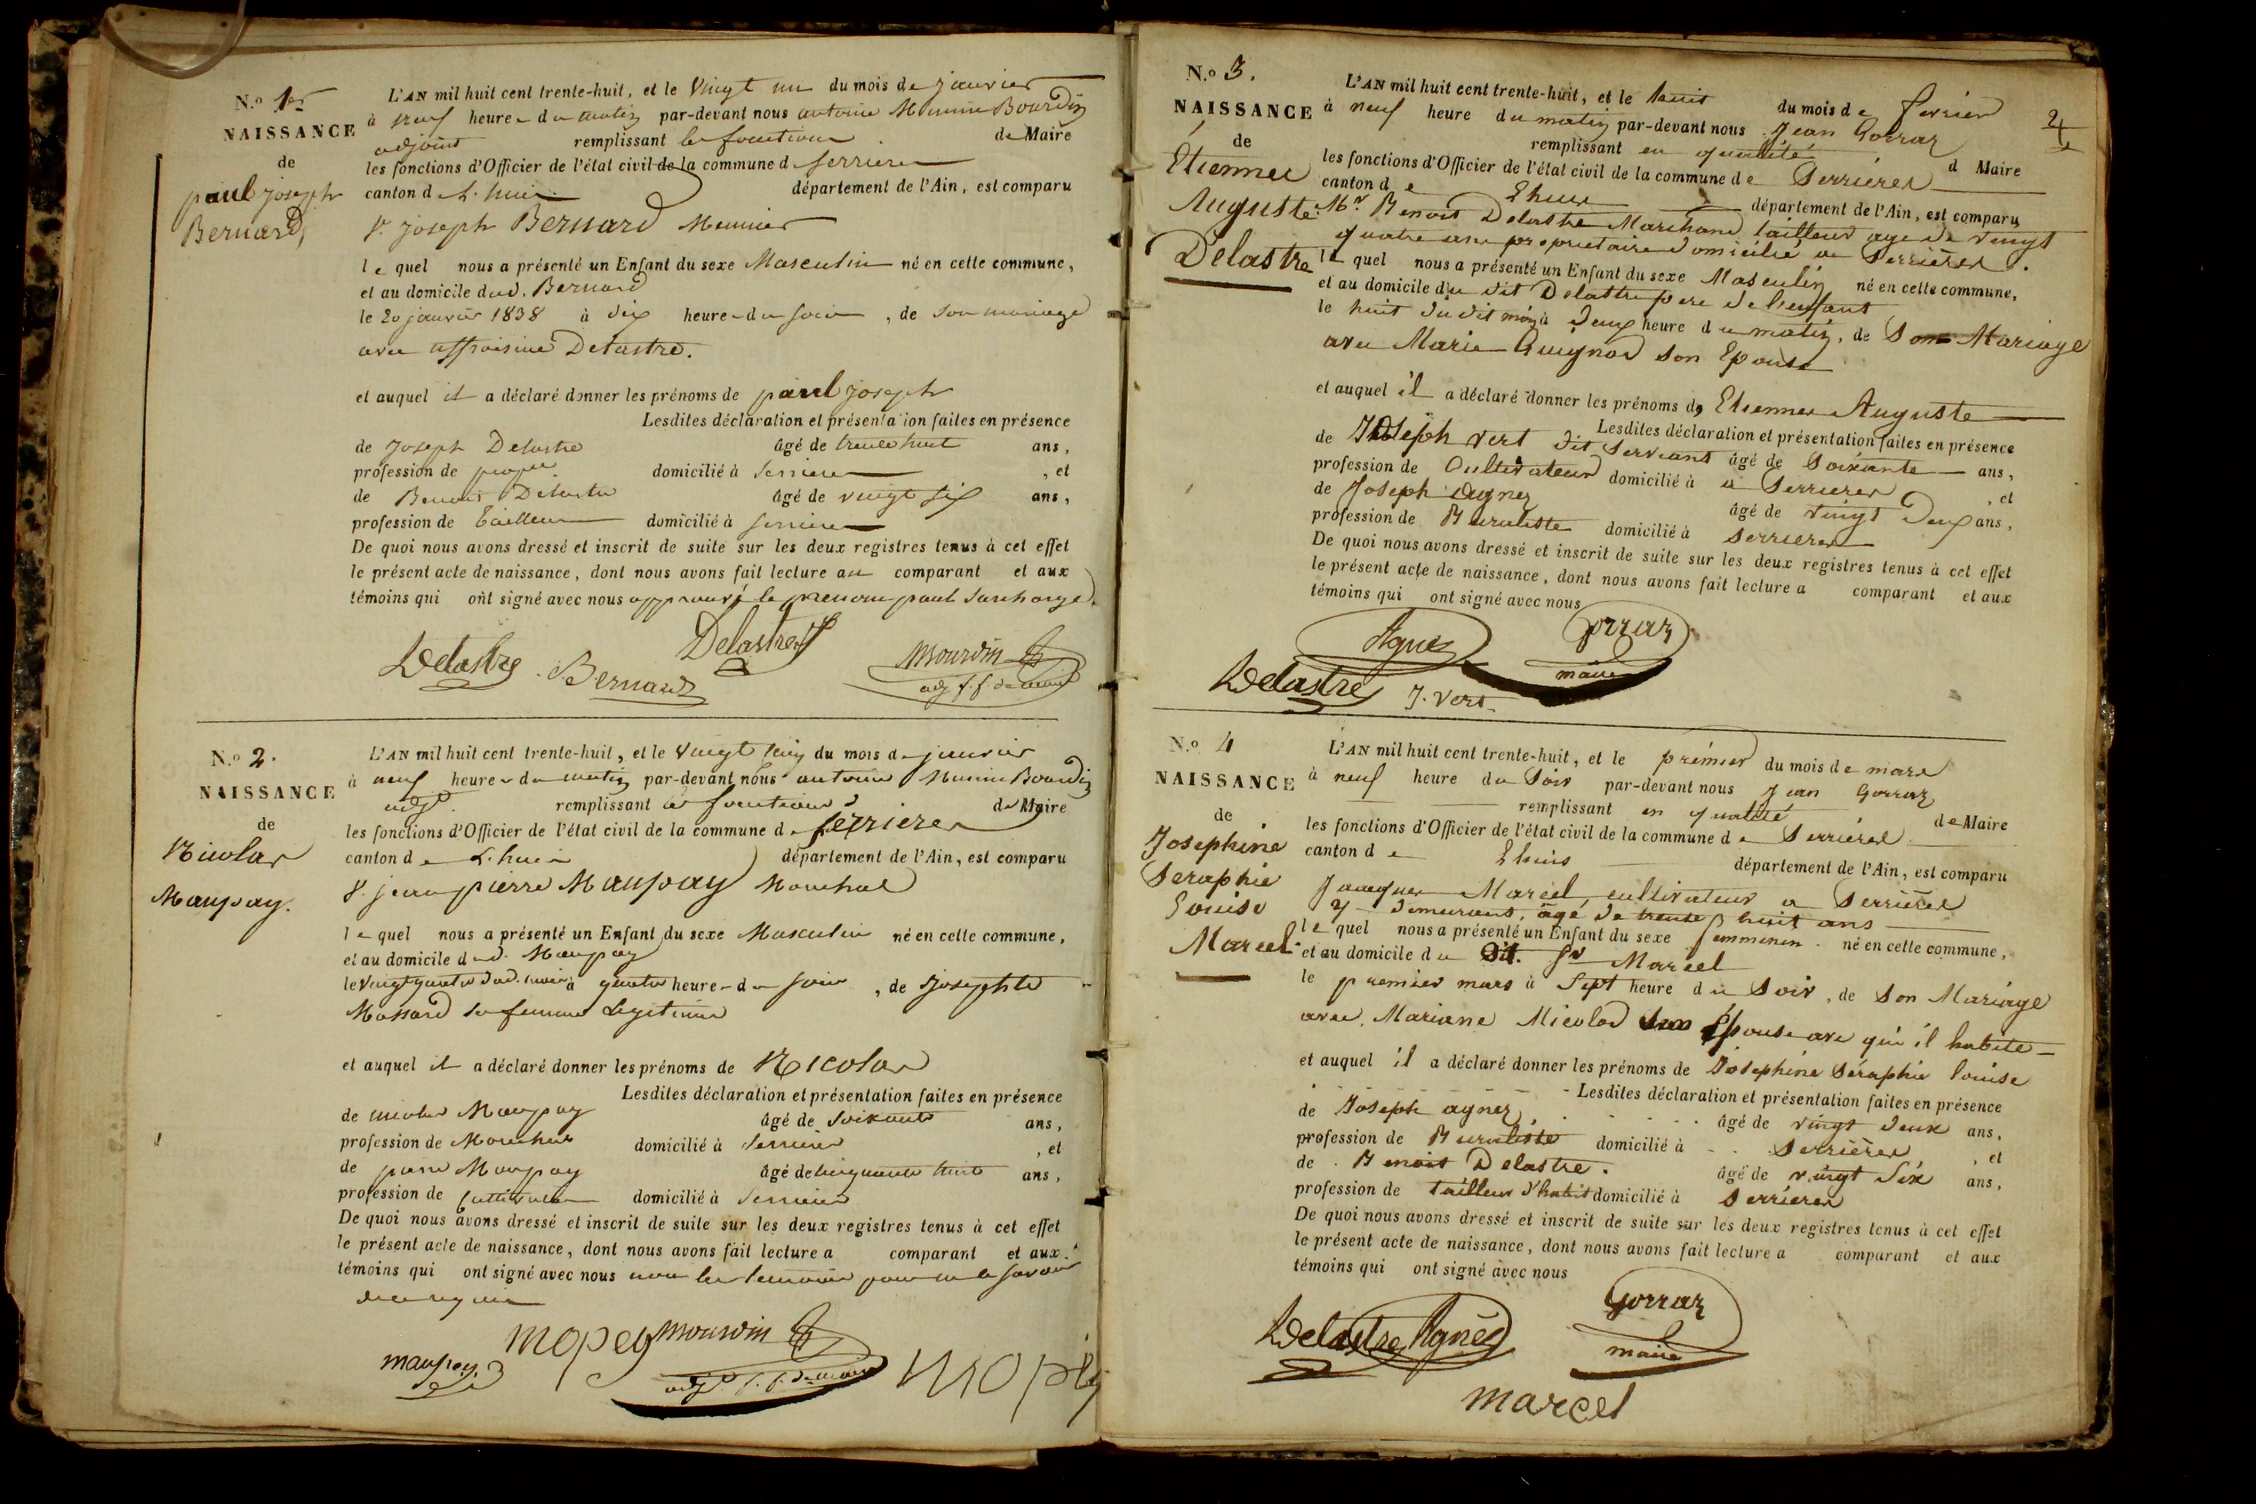 N.º 1er
NAISSANCE
de
paul joseph
Bernard,
L'AN mil huit cent trente-huit, et le vingt un du mois de janvier
à neuf heure du matin par-devant nous antoine Bourdin
adjoint remplissant les fonctions de Maire
les fonctions d'Officier de l'état civil de la commune d serrieres
canton d L'huis département de l'Ain, est comparu
Sr joseph Bernard Meunier
le quel nous a présenté un Enfant du sexe Masculin né en cette commune,
et au domicile dud. Bernard
le 20 janvier 1838 à dix heure du soir, de son mariage
avec Delastre.
et auquel il a déclaré donner les prénoms de paul joseph
Lesdites déclaration et présentation faites en présence
de joseph Delastre âgé de trente huit ans,
profession de propre domicilié à serrieres, et
de Benoit Delastre âgé de vingt six ans,
profession de tailleur domicilié à serrieres
De quoi nous avons dressé et inscrit de suite sur les deux registres tenus à cet effet
le présent acte de naissance, dont nous avons fait lecture au comparant et aux
témoins qui ont signé avec nous approuvé le prenom paul surchargé.
Delastre Bernard Delastre Mourdin
adj f. f. de maire
N.º 2.
NAISSANCE
de
Nicolas
Maupay.
L'AN mil huit cent trente-huit, et le vingt cinq du mois de janvier
à neuf heure du matin par-devant nous antoine Bourdin
adjt remplissant les fonctions de Maire
les fonctions d'Officier de l'état civil de la commune de serrieres
canton de L'huis département de l'Ain, est comparu
Sr jean pierre Maupay Marechal
le quel nous a présenté un Enfant du sexe Masculin né en cette commune,
et au domicile dud. Maupay
le vingt quatre dud. mois à quatre heure du soir, de josephte
Massard sa femme Legitime
et auquel il a déclaré donner les prénoms de Nicolas
Lesdites déclaration et présentation faites en présence
de nicolas Maupay âgé de soixante ans,
profession de Marechal domicilié à serrieres, et
de pierre Maupay âgé de cinquante huit ans,
profession de Cultivateur domicilié à serrieres
De quoi nous avons dressé et inscrit de suite sur les deux registres tenus à cet effet
le présent acte de naissance, dont nous avons fait lecture a comparant et aux
témoins qui ont signé avec nous les pour savoir
de ce requis
maupay mopey Mourdin mopey
adjt f. f. de maire
2
N.º 3.
NAISSANCE
de
Étienne
Auguste
Delastre
L'AN mil huit cent trente-huit, et le huit du mois de fevrier
à neuf heure du matin par-devant nous Jean Gorraz
remplissant en qualité d Maire
les fonctions d'Officier de l'état civil de la commune de Serriéres
canton de Lhuis département de l'Ain, est comparu
Mr Benoit Delastre Marchand tailleur age de vingt
quatre ans propriétaire domicilié a Serrieres.
le quel nous a présenté un Enfant du sexe Masculin né en cette commune,
et au domicile du dit Delastre pere de l'enfant
le huit du dit mois à deux heure du matin, de Son Mariage
avec Marie Guynod son Epouse
et auquel il a déclaré donner les prénoms de Etienne Auguste
Lesdites déclaration et présentation faites en présence
de Joseph Vert dit Servians âgé de Soixante ans,
profession de Cultivateur domicilié à a Serrieres, et
de Joseph agnez âgé de vingt Deux ans,
profession de Buraliste domicilié à Serrieres
De quoi nous avons dressé et inscrit de suite sur les deux registres tenus à cet effet
le présent acte de naissance, dont nous avons fait lecture a comparant et aux
témoins qui ont signé avec nous
Agnez Gorraz
maire
Delastre J. Vert
N.º 4
NAISSANCE
de
Josephine
Seraphie
Louise
Marcel
L'AN mil huit cent trente-huit, et le premier du mois de mars
à neuf heure du Soir par-devant nous Jean Gorraz
remplissant en qualité de Maire
les fonctions d'Officier de l'état civil de la commune de Serriéres
canton de Lhuis département de l'Ain, est comparu
Jacques Marcel cultivateur a Serrieres
y demeurant, âgé de trente huit ans
le quel nous a présenté un Enfant du sexe femminin né en cette commune,
et au domicile du dit. Sr Marcel
le premier mars à Sept heure du Soir, de Son Mariage
avec Mariane Micolod son épouse avec qui il habite
et auquel il a déclaré donner les prénoms de Joséphine Séraphie louise
Lesdites déclaration et présentation faites en présence
de Joseph agnez âgé de vingt deux ans,
profession de Buraliste domicilié à Serrières, et
de Benoit Delastre. âgé de vingt Six ans,
profession de tailleur d'habit domicilié à Serrieres
De quoi nous avons dressé et inscrit de suite sur les deux registres tenus à cet effet
le présent acte de naissance, dont nous avons fait lecture a comparant et aux
témoins qui ont signé avec nous
Delastre Agnés Gorraz
maire
marcel